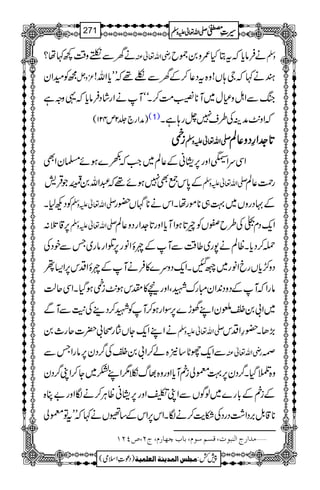 سیرتِ مصطفیٰ صلی اللہ تعالیٰ علیہ وسلم 271
نے فرمایا کہ یہ بتا! کیا عمرو بن جموح رضی اللہ تعالیٰ عنہ نے گھر سے نکلتے وقت کچھ کہا تھا؟
ہند نے کہا کہ جی ہاں! وہ یہ دعا کر کے گھر سے نکلے تھے کہ ”یا اللہ! عزوجل مجھ کو میدان
جنگ سے اہل و عیال میں آنا نصیب مت کر۔“ آپ نے ارشاد فرمایا کہ یہی وجہ ہے
کہ اونٹ مدینہ کی طرف نہیں چل رہا ہے۔ (1) (مدارج جلد ۲ ص ۱۲۴)
تاجدارِ دو عالم صلی اللہ تعالیٰ علیہ وسلم زخمی
اسی سراسیمگی اور پریشانی کے عالم میں جب کہ بکھرے ہوئے مسلمان ابھی
رحمتِ عالم صلی اللہ تعالیٰ علیہ وسلم کے پاس جمع بھی نہیں ہوئے تھے کہ عبداللہ بن قمیئہ جو قریش
کے بہادروں میں بہت ہی نامور تھا۔ اس نے ناگہاں حضور صلی اللہ تعالیٰ علیہ وسلم کو دیکھ لیا۔
ایک دم بجلی کی طرح صفوں کو چیرتا ہوا آیا اور تاجدارِ دو عالم صلی اللہ تعالیٰ علیہ وسلم پر قاتلانہ
حملہ کر دیا۔ ظالم نے پوری طاقت سے آپ کے چہرۂ انور پر تلوار ماری جس سے خود کی
دو کڑیاں رخِ انور میں چبھ گئیں۔ ایک دوسرے کافر نے آپ کے چہرۂ اقدس پر ایسا پتھر
مارا کہ آپ کے دو دندان مبارک شہید، اور نیچے کا مقدس ہونٹ زخمی ہو گیا۔ اسی حالت
میں ابی بن خلف ملعون اپنے گھوڑے پر سوار ہو کر آپ کو شہید کر دینے کی نیت سے آگے
بڑھا۔ حضورِ اقدس صلی اللہ تعالیٰ علیہ وسلم نے اپنے ایک جاں نثار صحابی حضرت حارث بن
صمہ رضی اللہ تعالیٰ عنہ سے ایک چھوٹا سا نیزہ لے کر ابی بن خلف کی گردن پر مارا جس سے
وہ تلملا گیا۔ گردن پر بہت معمولی زخم آیا اور وہ بھاگ نکلا مگر اپنے لشکر میں جا کر اپنی گردن
کے زخم کے بارے میں لوگوں سے اپنی تکلیف اور پریشانی ظاہر کرنے لگا اور بے پناہ
ناقابلِ برداشت درد کی شکایت کرنے لگا۔ اس پر اس کے ساتھیوں نے کہا کہ ”یہ تو معمولی
.....مدارج النبوت، قسم سوم، باب چہارم، ج ۲، ص ۱۲٤
پیش کش: مجلس المدینۃ العلمیۃ (دعوتِ اسلامی)